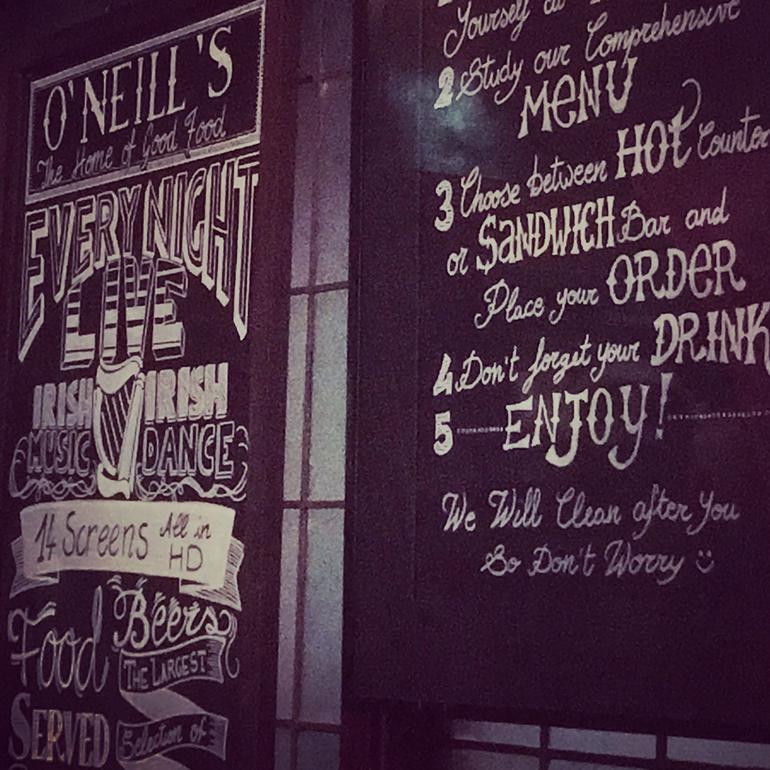 O'NEILL'S
The Home of Good Food
EVERY NIGHT
LIVE
IRISH IRISH
MUSIC DANCE
14 Screens All in
HD
Food Beers
THE LARGEST
SERVED Selection of
Yourself at
2 Study our Comprehensive
MENU
3 Choose between HOT Counter
or SANDWICH Bar and
Place your ORDER
4 Don't forget your DRINK
5 ENJOY!
We Will Clean after You
So Don't Worry